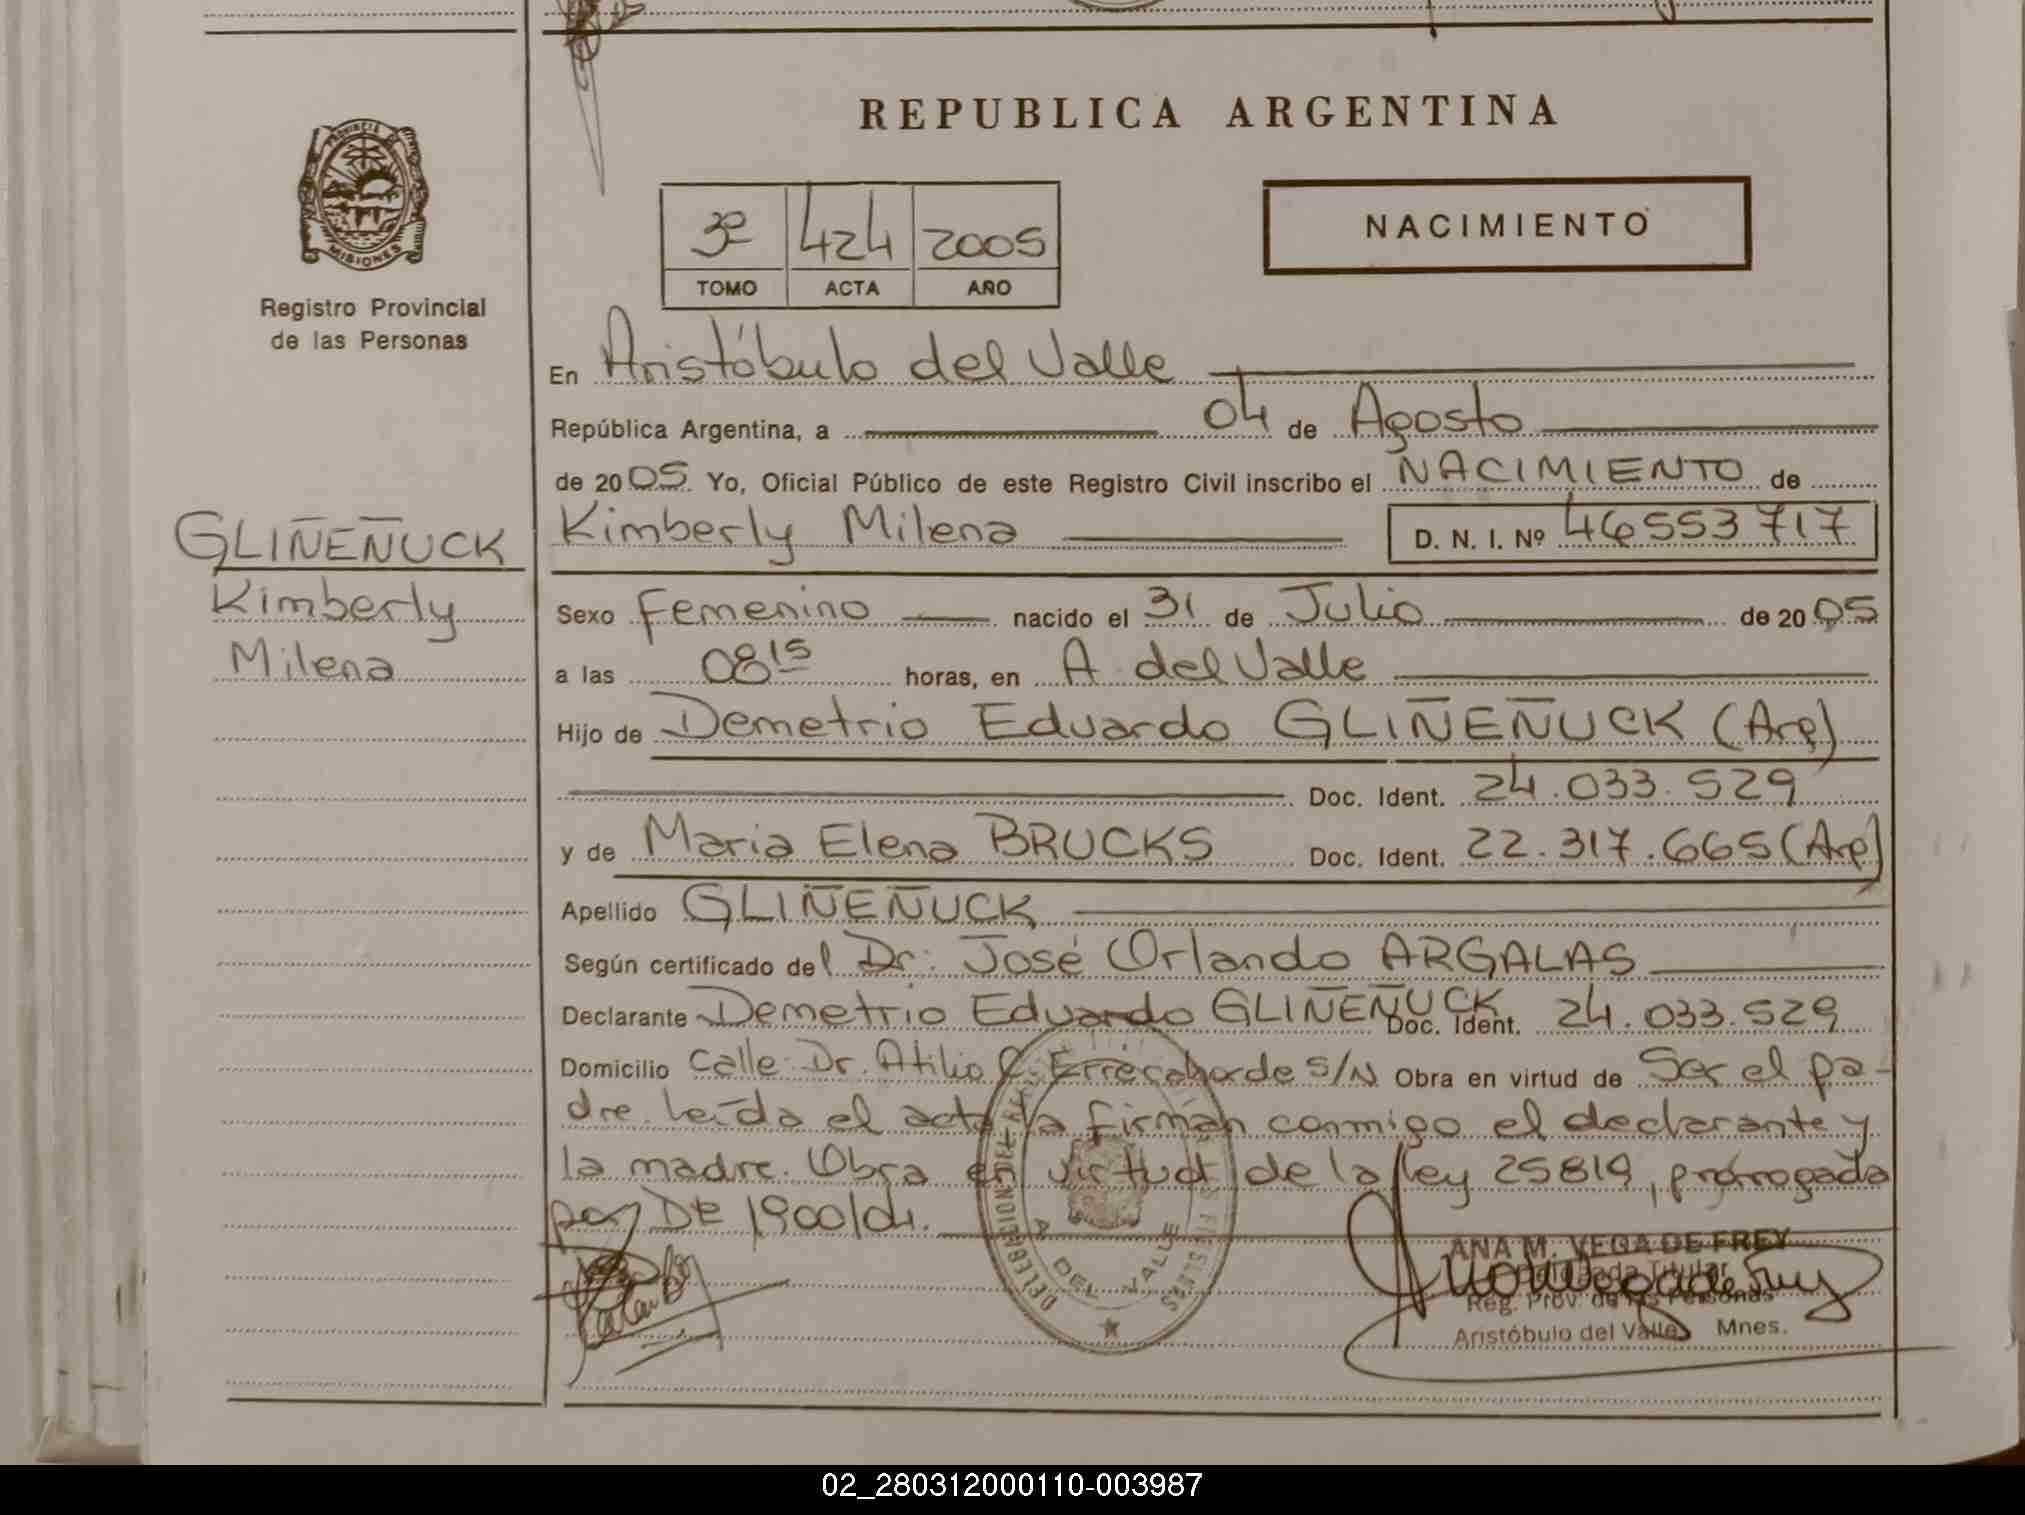 REPUBLICA ARGENTINA
PROVINCIA DE
MISIONES
Registro Provincial
de las Personas
3º 424 2005
TOMO ACTA AÑO
NACIMIENTO
En Aristóbulo del Valle
República Argentina, a 04 de Agosto
de 2005 Yo, Oficial Público de este Registro Civil inscribo el NACIMIENTO de
GLIÑEÑUCK
Kimberly
Milena
Kimberly Milena D. N. I. Nº 46553717
Sexo Femenino nacido el 31 de Julio de 2005
a las 08 15 horas, en A. del Valle
Hijo de Demetrio Eduardo GLIÑEÑUCK (Arg)
Doc. Ident. 24.033.529
y de Maria Elena BRUCKS Doc. Ident. 22.317.665 (Arg)
Apellido GLIÑEÑUCK
Según certificado del Dr. José Orlando ARGALAS
Declarante Demetrio Eduardo GLIÑEÑUCK Doc. Ident. 24.033.529
Domicilio Calle Dr. Atilio C. Errecaborde S/N Obra en virtud de Ser el pa-
dre. leída el acta la firman conmigo el declarante y
la madre. Obra en virtud de la ley 25819, prorrogada
por DE 1900/04.
A. DEL VALLE
ANA M. VEGA DE FREY
Titular
Reg. Prov. de las Personas
Aristóbulo del Valle Mnes.
02_280312000110-003987